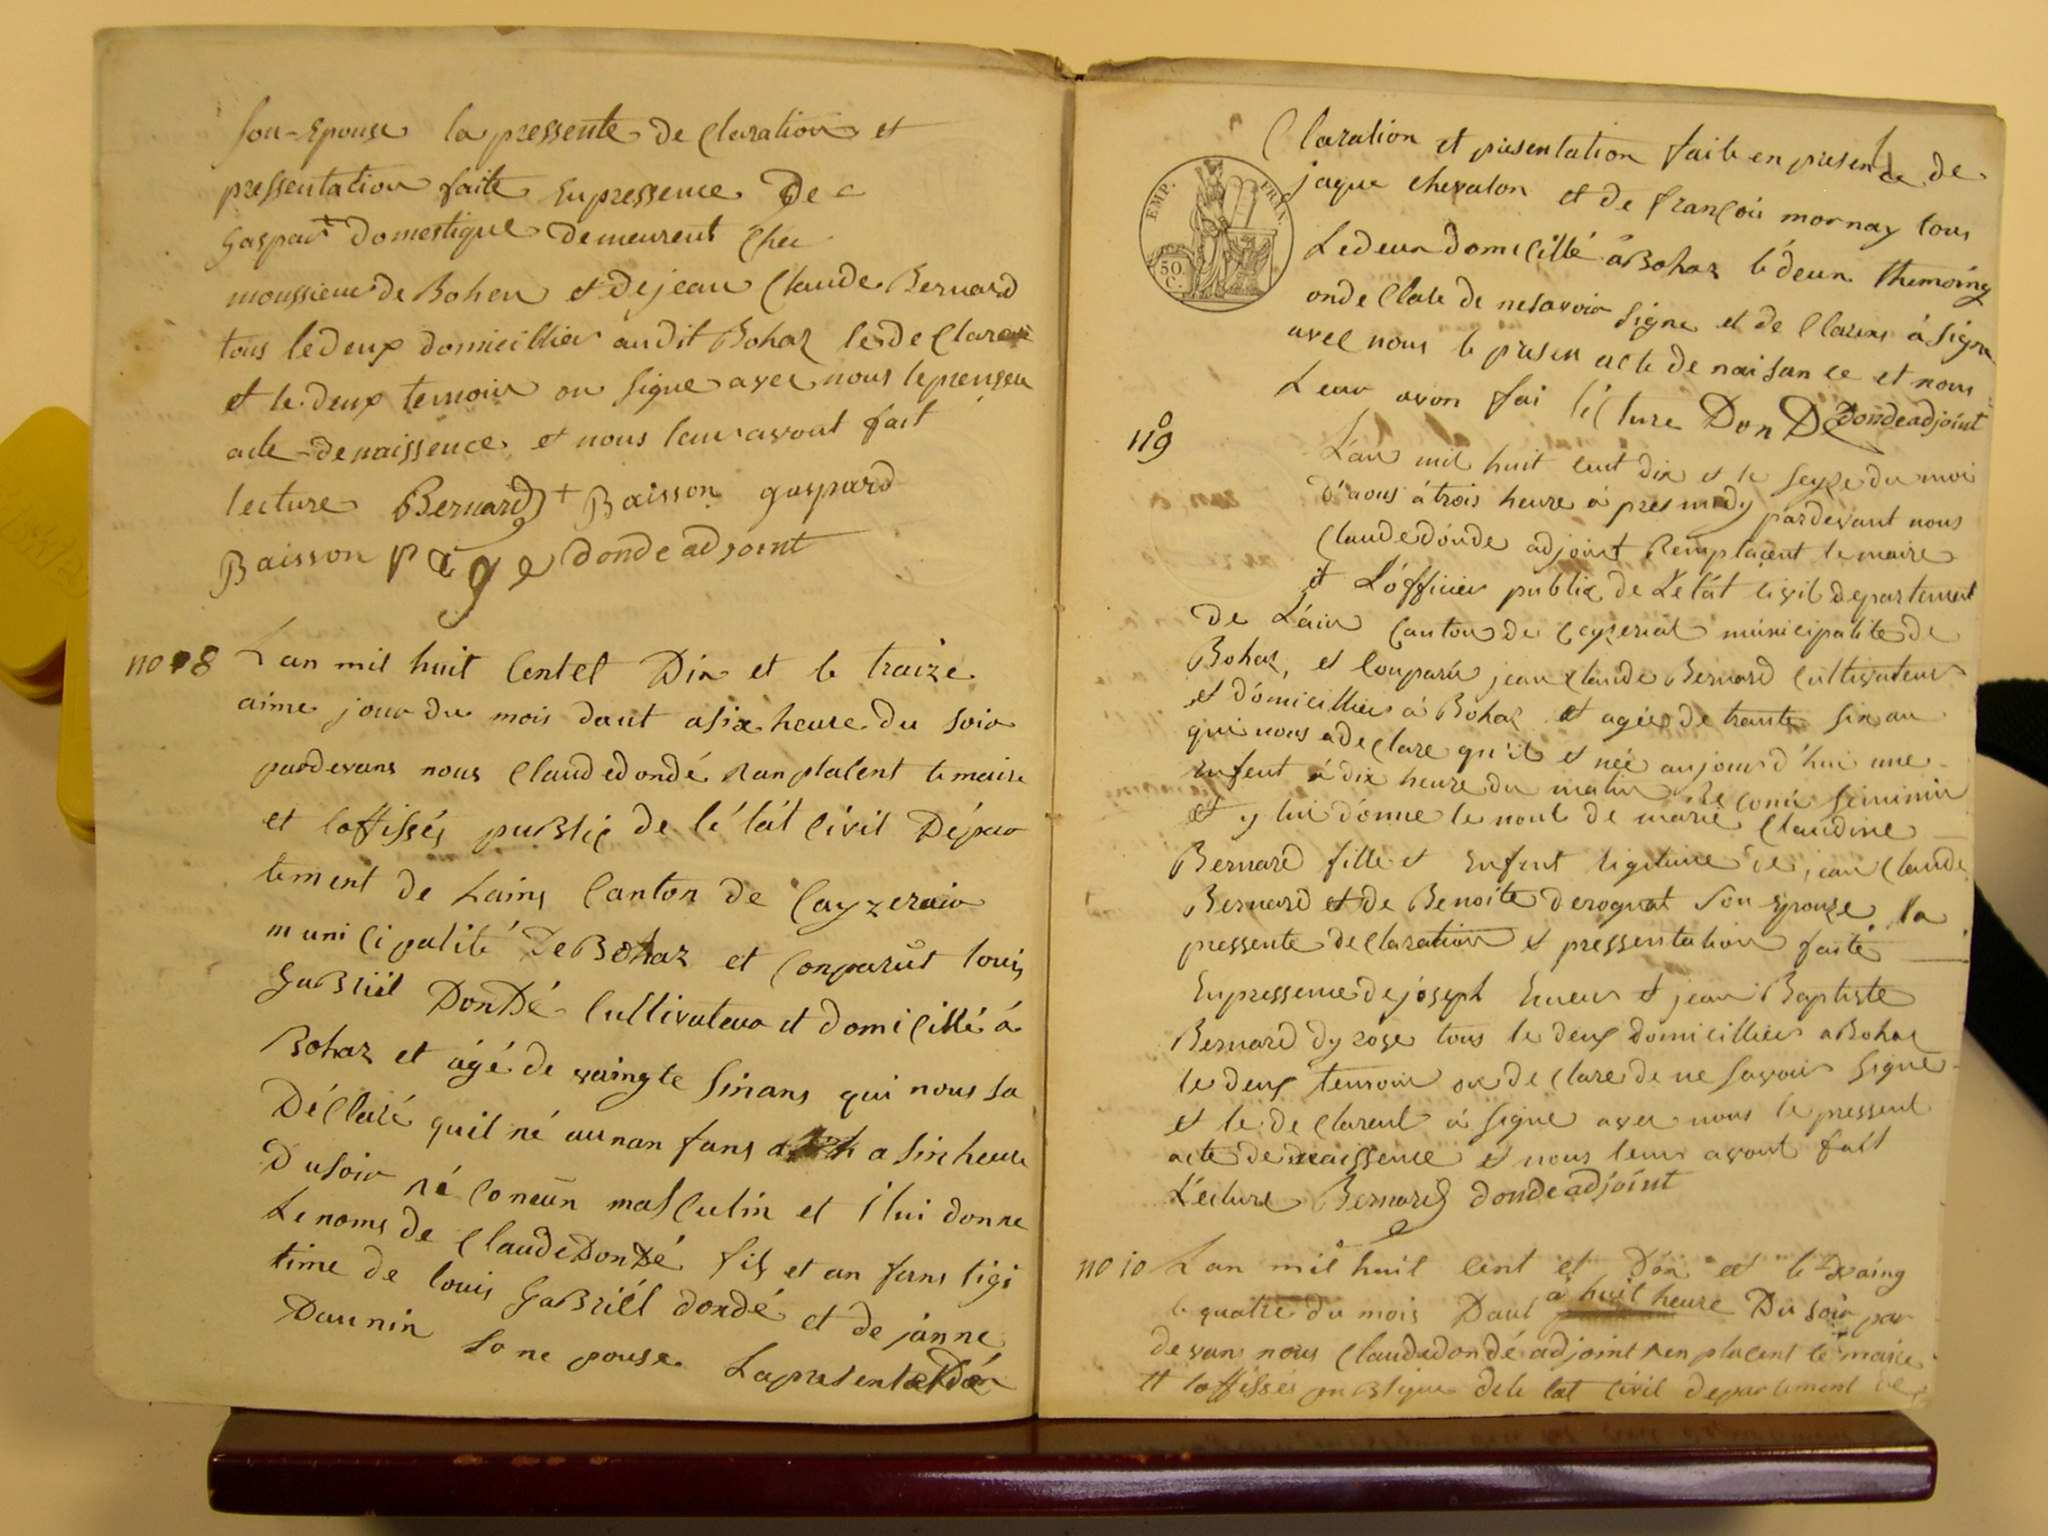 son-Epouse la pressente de Claration et
pressentation faite Enpressence De
gaspart domestique demeurent Chee
monssieur de Bohen et dejean Claude Bernard
tous ledeux domicillier audit Bohaz lesdeClaren
et le deux temoin on signe avec nous leprensen
acte-denaissence et nous leur avont fait
lecture Bernard + Baisson gaspard
Baisson page donde adjoint
no 8 Lan mil huit Centet Dix et le traize
aime jour du mois daut asix heure du soir
pardevans nous Claudedondé ranplalent lemaire
et loffissés puBliç de lé tát Civil Dépar
tement de Lains Canton de Cayzeraia
municipalité DeBohaz et Conparut louis
GaBriél DonDé Cultivateur et domiCillé á
Bohaz et ágé de vaingte Sinans qui nous la
Déclaré quil né aunan fans a six heure
Dusoir ré Coneun masCulin et ilui donne
Le noms de ClaudeDonDé fils et an fans ligi
time de louis GaBriél dondé et de janne
Daunin sone pouse Lapresente Dé
Claration et présentation faite en presen ce de
jaque chevalon et de françois mornay tous
Ledeux domiCillé á Bohaz lé deux themoing
ondeClare de nesavoir signe et deClarens á signe
avec nous le presen acte de naisance et nous
Leur avon fai léCture DonDé Dondeadjoint
EMP. FRAN.
50 C.
no 9
Lan mil huit Cent dix et le seize du moi
d'aous á trois heure á pres midy pardevant nous
Claudedónde adjoint Remplaçent lemaire
et L'officier public de L'etát Civil departement
de L'ain Canton de Ceyzeriat municipalite de
Bohaz, et Comparu jean Claude Bernard Cultivateur
et dómicillier á Bohaz et agée de trante sixan
qui nous adeClare qu'il et née aujourd'hui une
enfent á dix heure du matin ReConu féminin
et y lui dónne le nont de marie Claudine
Bernard fille et Enfent ligitime de jean Claude
Bernard et de Benoite derognat son Epouze la
pressente deClaration et pressentation faite
Enpressence de joseph et jean Baptiste
Bernard dy roze tous le deux domicillier a Bohaz
le deux temoin on deClare de ne savoir signe
et le deClarent á signe avec nous le pressent
acte de naissence et nous leur avont fait
L'ecture Bernard dondeadjoint
no 10 Lan mil huil Cent et Dix et le vaing
le quatre du mois Daut a huil heure Du soir par
devans nous Claudedondé adjoint ren plaCent le maire
et loffissés puBlique dele tat Civil departement de